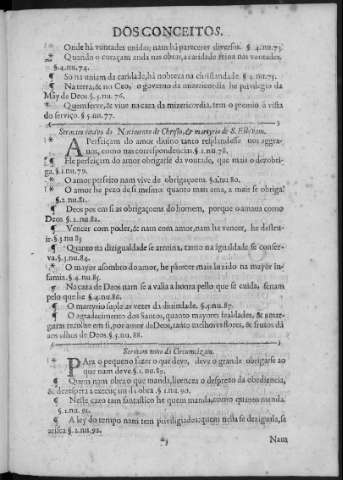 DOS CONCEITOS.
¶ Onde há vontades unidas, nam há pareceres diversos. §. 4. nu. 73.
* Quando o coraçam anda nas obras, a caridade reina nas vontades.
§. 4. nu. 74.
¶ So na uniam da caridade, há nobreza na christandade. §. 4. nu. 75.
¶ Na terra, & no Ceo, o governo da misericordia he privilegio da
Mãy de Deos §. 5. nu. 76.
* Quem serve, & vive na casa da misericordia, tem o premio à vista
do serviço. §. 5 nu. 77.
Sermam oitavo do Nacimento de Christo, & martyrio de S. Estevam.
* A Perfeiçam do amor divino tanto resplandesse nos aggra-
vos, como nas correspondencias. §. 1. nu. 78.
¶ He perfeiçam do amor obrigarse da vontade, que mais o dezobri-
ga. §. 1. nu. 79.
* O amor perfeito nam vive de obrigaçoens §. 2. nu. 80.
* O amor he prezo de si mesmo quanto mais ama, a mais se obriga!
§. 2. nu. 81.
¶ Deos poem em si as obrigaçoens do homem, porque o amava como
Deos §. 2. nu. 82.
¶ Vencer com poder, & nam com amor, nam he vencer, he desstru-
ir. §. 3 nu. 83
¶ Quanto na dizigualdade se arruina, tanto na igualdade se conser-
va. §. 3. nu. 84.
¶ O mayor assombro do amor, he parecer mais luzido na mayor in-
famia. §. 4. nu. 85.
¶ Na casa de Deos nam se avalia a honra pello que se cuida, senam
pelo que he §. 4. nu. 86.
¶ O martyrio suple as vezes da divindade. §. 4. nu. 87.
¶ O agradecimento dos Santos, quanto mayores fraldades, & amar-
guras recolhe em si, por amor de Deos, tanto melhores flores, & frutos dá
aos olhos de Deos §. 5. nu. 88.
Sermam nono da Circumcizam.
¶ PAra o pequeno fazer o que deve, deve o grande obrigarse ao
que nam deve §. 1. nu. 89.
¶ Quem nam obra o que manda, licencea o desprezo da obediencia,
& desautoriza a execuçam da obra. §. 1. nu. 90.
¶ Neste cazo tam fantastico he quem manda, como quanto manda
§. 1. nu. 91.
¶ A ley do tempo nam tem privilegiados: quem nesta se desiguala, se
arrisca §. 1. nu. 92.
Nam